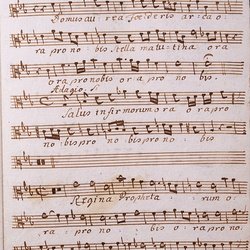 Domus au rea foederis arca o
ra pro no bis Stella matutina ora
ora pro nobis ora pro no bis.
Adagio. S.
Salus infirmorum ora ora pro
no bis pro no bis pro no bis
Regina Propheta rum o
ra pro no bis o ra pro no